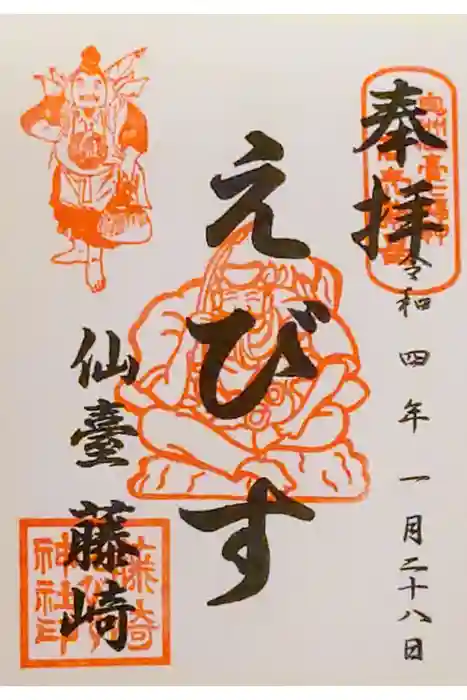 奉拝
令和四年一月二十八日
えびす
仙臺 藤崎
藤崎
神社印